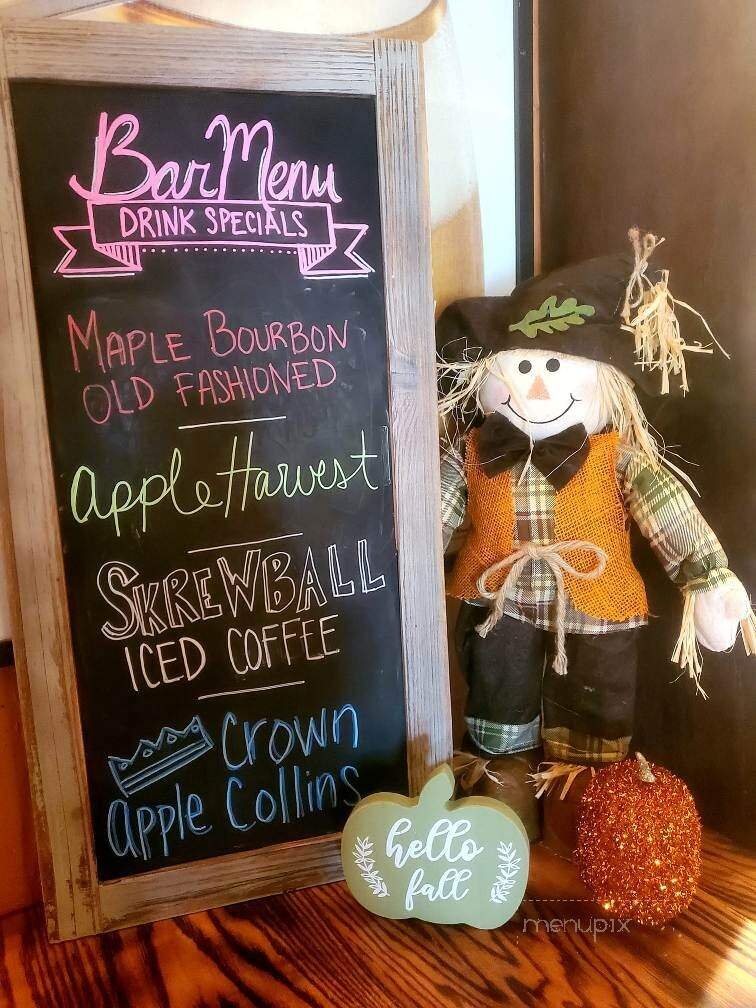 Bar Menu
DRINK SPECIALS
MAPLE BOURBON
OLD FASHIONED
Apple Harvest
SKREWBALL
ICED COFFEE
Crown
Apple Collins
hello
fall
menupix